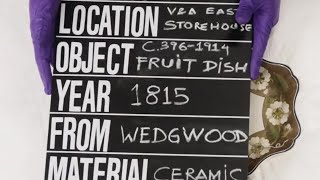 LOCATION V&A EAST STOREHOUSE
OBJECT C.396-1914 FRUIT DISH
YEAR 1815
FROM WEDGWOOD
MATERIAL CERAMIC